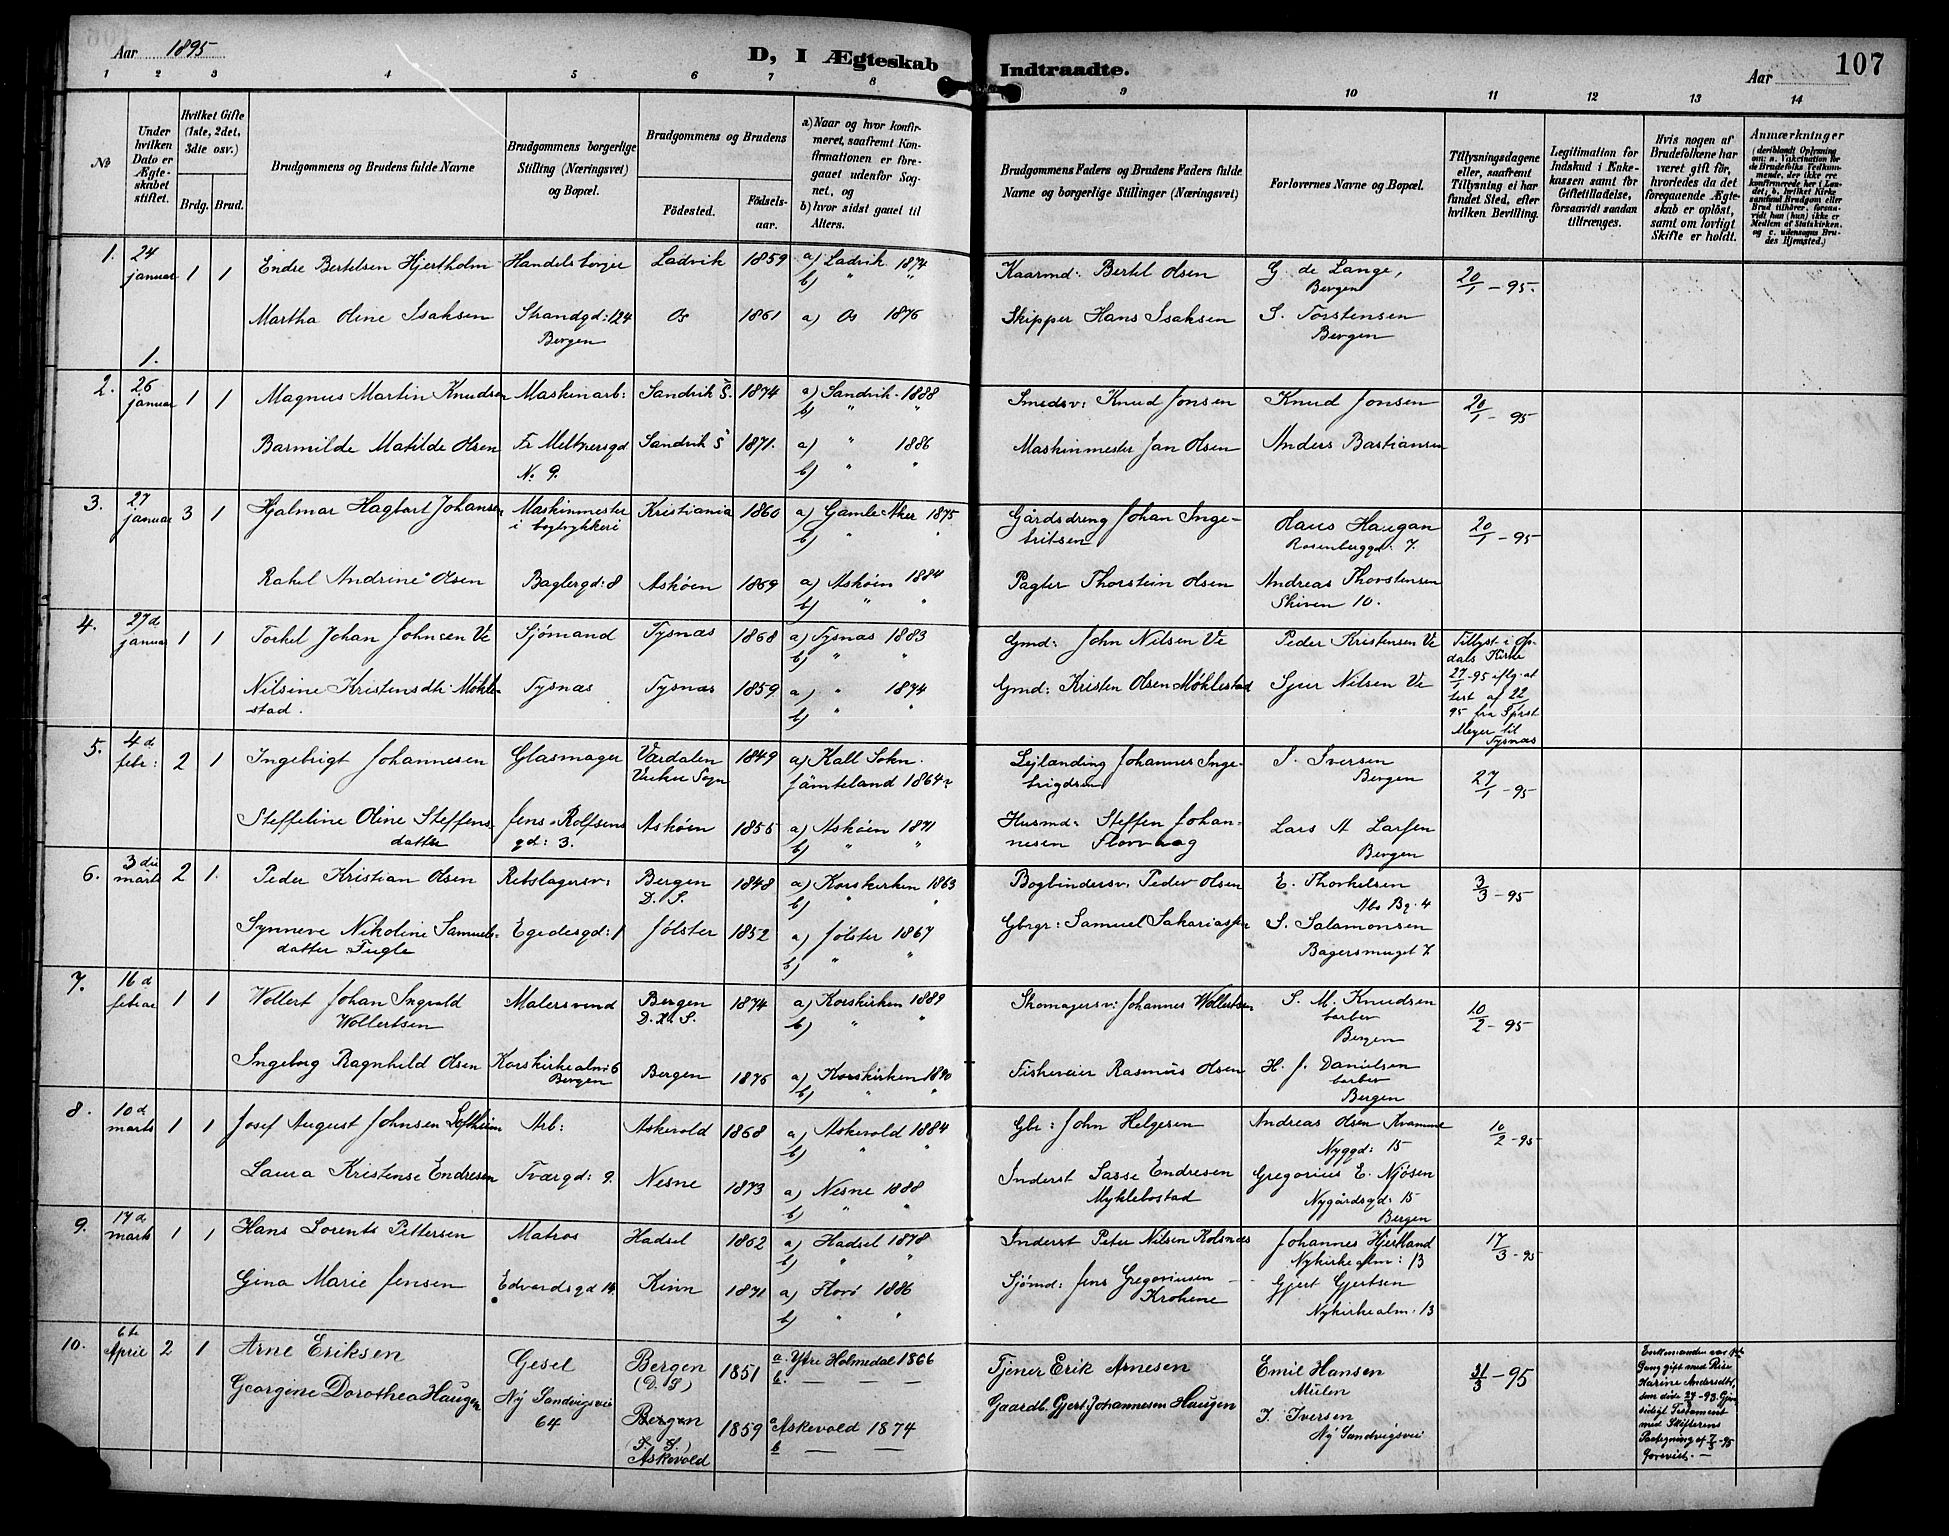 Aar 1895
D, I Ægteskab Indtraadte.
Aar
107
1 2 3 4 5 6 7 8 9 10 11 12 13 14
No
Under hvilken Dato er Ægteskabet stiftet.
Hvilket Gifte (1ste, 2det, 3die osv.)
Brdg. Brud.
Brudgommens og Brudens fulde Navne
Brudgommens borgerlige Stilling (Næringsvei) og Bopæl.
Brudgommens og Brudens
Födested.
Födselsaar.
a) Naar og hvor konfirmeret, saafremt Konfirmationen er foregaaet udenfor Sognet, og
b) hvor sidst gaaet til Alters.
Brudgommens Faders og Brudens Faders fulde Navne og borgerlige Stillinger (Næringsvei)
Forlovernes Navne og Bopæl.
Tillysningsdagene eller, saafremt Tillysning ei har fundet Sted, efter hvilken Bevilling.
Legitimation for Indskud i Enkekassen samt for Giftetilladelse, forsaavidt saadan tiltrænges.
Hvis nogen af Brudefolkene har været gift før, hvorledes da det foregaaende Ægteskab er oplöst, samt om lovligt Skifte er holdt.
Anmærkninger (deriblandt Oplysning om: a. Vakcination for de Brudefolks Vedkommende, der ikke ere konfirmerede her i Landet; b. hvilket Kirkesamfund Brudgom eller Brud tilhører, forsaavidt han (hun) ikke er Medlem af Statskirken, og c. udensogns Brudes Hjemsted.)
1. 24 januar 1 1 Endre Bertelsen Hjertholm Handelsborger Ladvik 1859 a) Ladvik 1874 b) " " Kaarmd: Bertel Olsen G. de Lange, Bergen 20/1 - 95.
Martha Oline Isaksen Strandgd: 124 Bergen Os 1861 a) Os 1876 Skipper Hans Isaksen S. Torstensen Bergen
1.
2. 26 januar 1 1 Magnus Martin Knudsen Maskinarb: Sandvik S. 1874 a) Sandvik 1888 b) " " Smedsv: Knud Jonsen Knud Jonsen 20/1 - 95
Barmilde Matilde Olsen Fr. Meltzersgd No. 9. Sandvik S 1871. a) " 1886 b) " " Maskinmester Jan Olsen Anders Bastiansen
3. 27 januar 3 1 Hjalmar Hagbart Johansen Maskinmester i bogtrykkeri Kristiania 1860 a) Gamle Aker 1875 b) " " Gårdsdreng Johan Ingebritsen Olaus Haugan Rosenberggd: 7. 20/1 - 95
Rakel Andrine Olsen Baglergd: 8 Askøen 1869 a) Askøen 1884 b) " " Pagter Thorstein Olsen Andreas Thorstensen Skiven 10.
4. 27d januar 1 1 Torkel Johan Johnsen Ve Sjømand Tysnæs 1868 a) Tysnæs 1883 b) " " Gmd: John Nilsen Ve Peder Kristensen Ve Tillyst i Opdals Kirke 27/1-95 iflg. attest af 22/1 95 fra Spr Meyer til Tysnæs
Nilsine Kristensdtr Møhlestad. Tysnæs Tysnæs 1859 a) " 1874 b) " " Gmd: Kristen Olsen Møhlestad Sjur Nilsen Ve
5. 4d febr: 2 1 Ingebrigt Johannesen Glasmager Værdalen Vuku Sogn 1849 a) Kall Sokn. Jämteland 1864 Lejlænding Johannes Ingebrigdsen S. Iversen Bergen 27/1 - 95
Steffeline Oline Steffensdatter Jens Rolfsensgd: 3. Askøen 1855 a) Askøen 1871 b) " " Husmd: Steffen Johannesen Florvaag Lars A Larsen Bergen
6. 3die märts 2 1. Peder Kristian Olsen Rebslagersv: Bergen D. S. 1848 a) Korskirken 1863 b) " " Bogbindersv: Peder Olsen E. Thorkelsen Abs Bg. 4 3/3 - 95
Synneve Nikoline Samuelsdatter Fugle Egedesgd: 1 Jølster 1852 a) Jølster 1867 b) " " Gbrgr: Samuel Sakariasen S. Salamonsen Bagersmuget 7
7. 16d februar 1 1 Wollert Johan Ingvald Wollertsen Malersvend Bergen D.K. S. 1874 a) Korskirken 1889 b) " " Skomagersv: Johannes Wollertsen S. M. Knudsen barber Bergen 10/2 - 95
Ingeborg Ragnhild Olsen Korskirkealm: 6 Bergen Bergen 1875 a) Korskirken 1890 b) " " Fiskeveier Rasmus Olsen H. J. Danielsen barber Bergen
8. 10d marts 1 1 Josef August Johnsen Loftheim Arb: Askevold 1868 a) Askevold 1884 b) " " Gbr: John Helgesen Andreas Olsen Kvamme Nyggd: 15 10/2 - 95
Laura Kristense Endresen Tværgd: 9. Nesne 1873 a) Nesne 1888 b) " " Inderst Lasse Endresen Myklebostad Gregorius E. Njøsen Nygårdsgd: 15 Bergen
9. 17d marts 1 1 Hans Lorents Pettersen Matros Hadsel 1862 a) Hadsel 1878 b) " " Inderst Peter Nilsen Kolsnes Johannes Hjertland Nykirkealm: 13 17/3 - 95
Gina Marie Jensen Edvardsgd 14. Kinn 1871 a) Florø 1886 b) " " Sjømd: Jens Gregoriusen Krokene Gjert Gjertsen Nykirkealm: 13
10. 6te April 2 1 Arne Eriksen Gesel Bergen (D. S) 1851 a. Ytre Holmedal 1866 b. — — Tjener Erik Arnesen Emil Hansen Mulen 31/3 - 95
Georgine Dorothea Haugen Ny Sandvigsvei 64 Bergen (F. S.) Askevold 1859 a Askevold 1874 b — — Gaardb. Gjert Johannesen Haugen I. Iversen Ny Sandvigsvei
Enkemanden var Gang gift med Karine Andersdtr, som døde 93. Gjensidigt Testament med Skifterens Paategning af 7/3-95 forevist. —